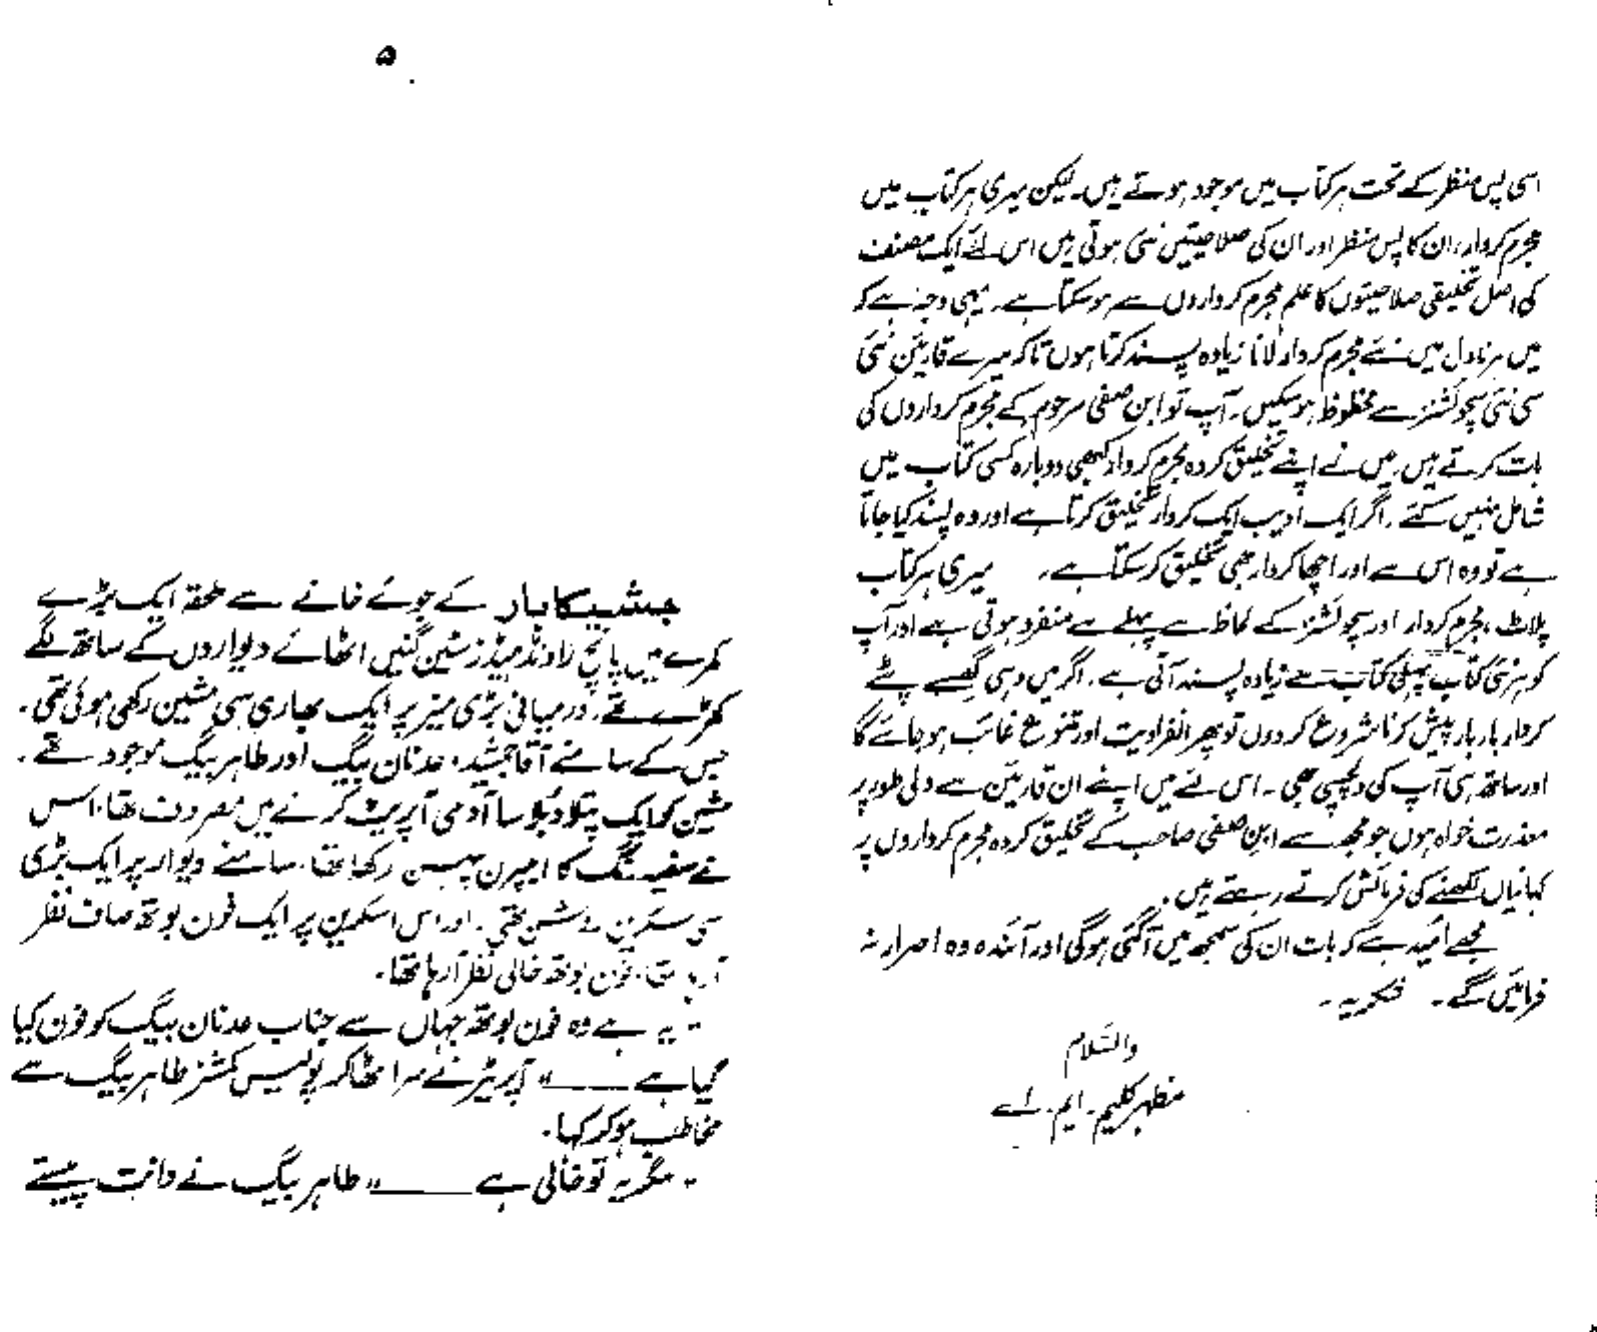 اسی پس منظر کے تحت ہر کتاب میں موجود ہوتے ہیں۔ لیکن میری ہر کتاب میں
مجرم کردار، ان کا پس منظر اور ان کی صلاحیتیں نئی ہوتی ہیں اس لئے ایک مصنف
کی اصل تخلیقی صلاحیتوں کا علم مجرم کرداروں سے ہو سکتا ہے۔ یہی وجہ ہے کہ
میں ہر ناول میں نئے مجرم کردار لانا زیادہ پسند کرتا ہوں تاکہ میرے قارئین نئی
سی نئی سچوئشنز سے محظوظ ہو سکیں۔ آپ تو ابن صفی مرحوم کے مجرم کرداروں کی
بات کرتے ہیں۔ میں نے اپنے تخلیق کردہ مجرم کردار کبھی دوبارہ کسی کتاب میں
شامل نہیں کئے۔ اگر ایک ادیب ایک کردار تخلیق کرتا ہے اور وہ پسند کیا جاتا
ہے تو وہ اس سے اور اچھا کردار بھی تخلیق کر سکتا ہے۔ میری ہر کتاب
پلاٹ، مجرم کردار اور سچوئشنز کے لحاظ سے پہلے سے منفرد ہوتی ہے اور آپ
کو ہر نئی کتاب پہلی کتاب سے زیادہ پسند آتی ہے۔ اگر میں وہی گھسے پٹے
کردار بار بار پیش کرنا شروع کر دوں تو پھر انفرادیت اور تنوع غائب ہو جائے گا
اور ساتھ ہی آپ کی دلچسپی بھی۔ اس لئے میں اپنے ان قارئین سے دلی طور پر
معذرت خواہ ہوں جو مجھ سے ابن صفی صاحب کے تخلیق کردہ مجرم کرداروں پر
کہانیاں لکھنے کی فرمائش کرتے رہتے ہیں۔
مجھے امید ہے کہ بات ان کی سمجھ میں آ گئی ہو گی اور آئندہ وہ اصرار نہ
فرمائیں گے۔ شکریہ۔
والسّلام
مظہر کلیم۔ ایم۔ اے
۵
جمشید کا بار کے جوئے خانے سے ملحقہ ایک بڑے
کمرے میں پانچ راونڈ میڈز مشین گنیں اٹھائے دیواروں کے ساتھ لگے
کھڑے تھے۔ درمیانی بڑی میز پر ایک بھاری سی مشین رکھی ہوئی تھی۔
جس کے سامنے آقا جمشید، عدنان بیگ اور طاہر بیگ موجود تھے۔
مشین کو ایک پتلا دبلا سا آدمی آپریٹ کرنے میں مصروف تھا۔ اس
نے سفید رنگ کا ایپرن پہن رکھا تھا۔ سامنے دیوار پر ایک بڑی
سی سکرین روشن تھی۔ اور اس اسکرین پر ایک فون بوتھ صاف نظر
آ رہا تھا۔ فون بوتھ خالی نظر آ رہا تھا۔
"یہ ہے وہ فون بوتھ جہاں سے جناب عدنان بیگ کو فون کیا
گیا ہے ——" آپریٹر نے سر اٹھا کر پولیس کمشنر طاہر بیگ سے
مخاطب ہو کر کہا۔
"مگر یہ تو خالی ہے ——" طاہر بیگ نے دانت پیستے